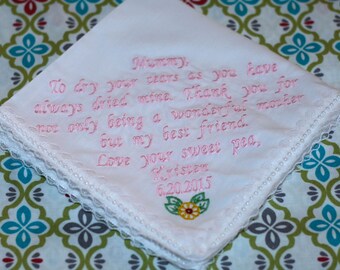 Mummy,
To dry your tears as you have
always dried mine. Thank you for
not only being a wonderful mother
but my best friend.
Love your sweet pea,
Kristen
6.20.2015